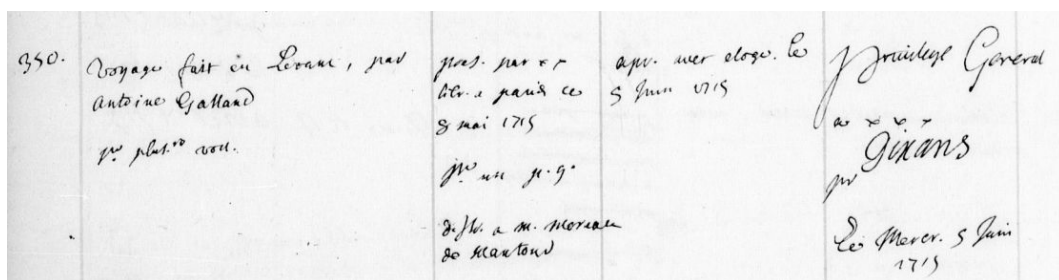 350.
Voyage fait en Levant, par
Antoine Galland
pr. plus.rs voll.
pres. par xx
libr. a paris ce
8 mai 1715
pr. un p. g.
distr. a m. moreau
de Mautour
apr. avec eloge. le
5 Juin 1715
Privilege General
a x x x
pr Dix ans
Le Mercr. 5 Juin
1715